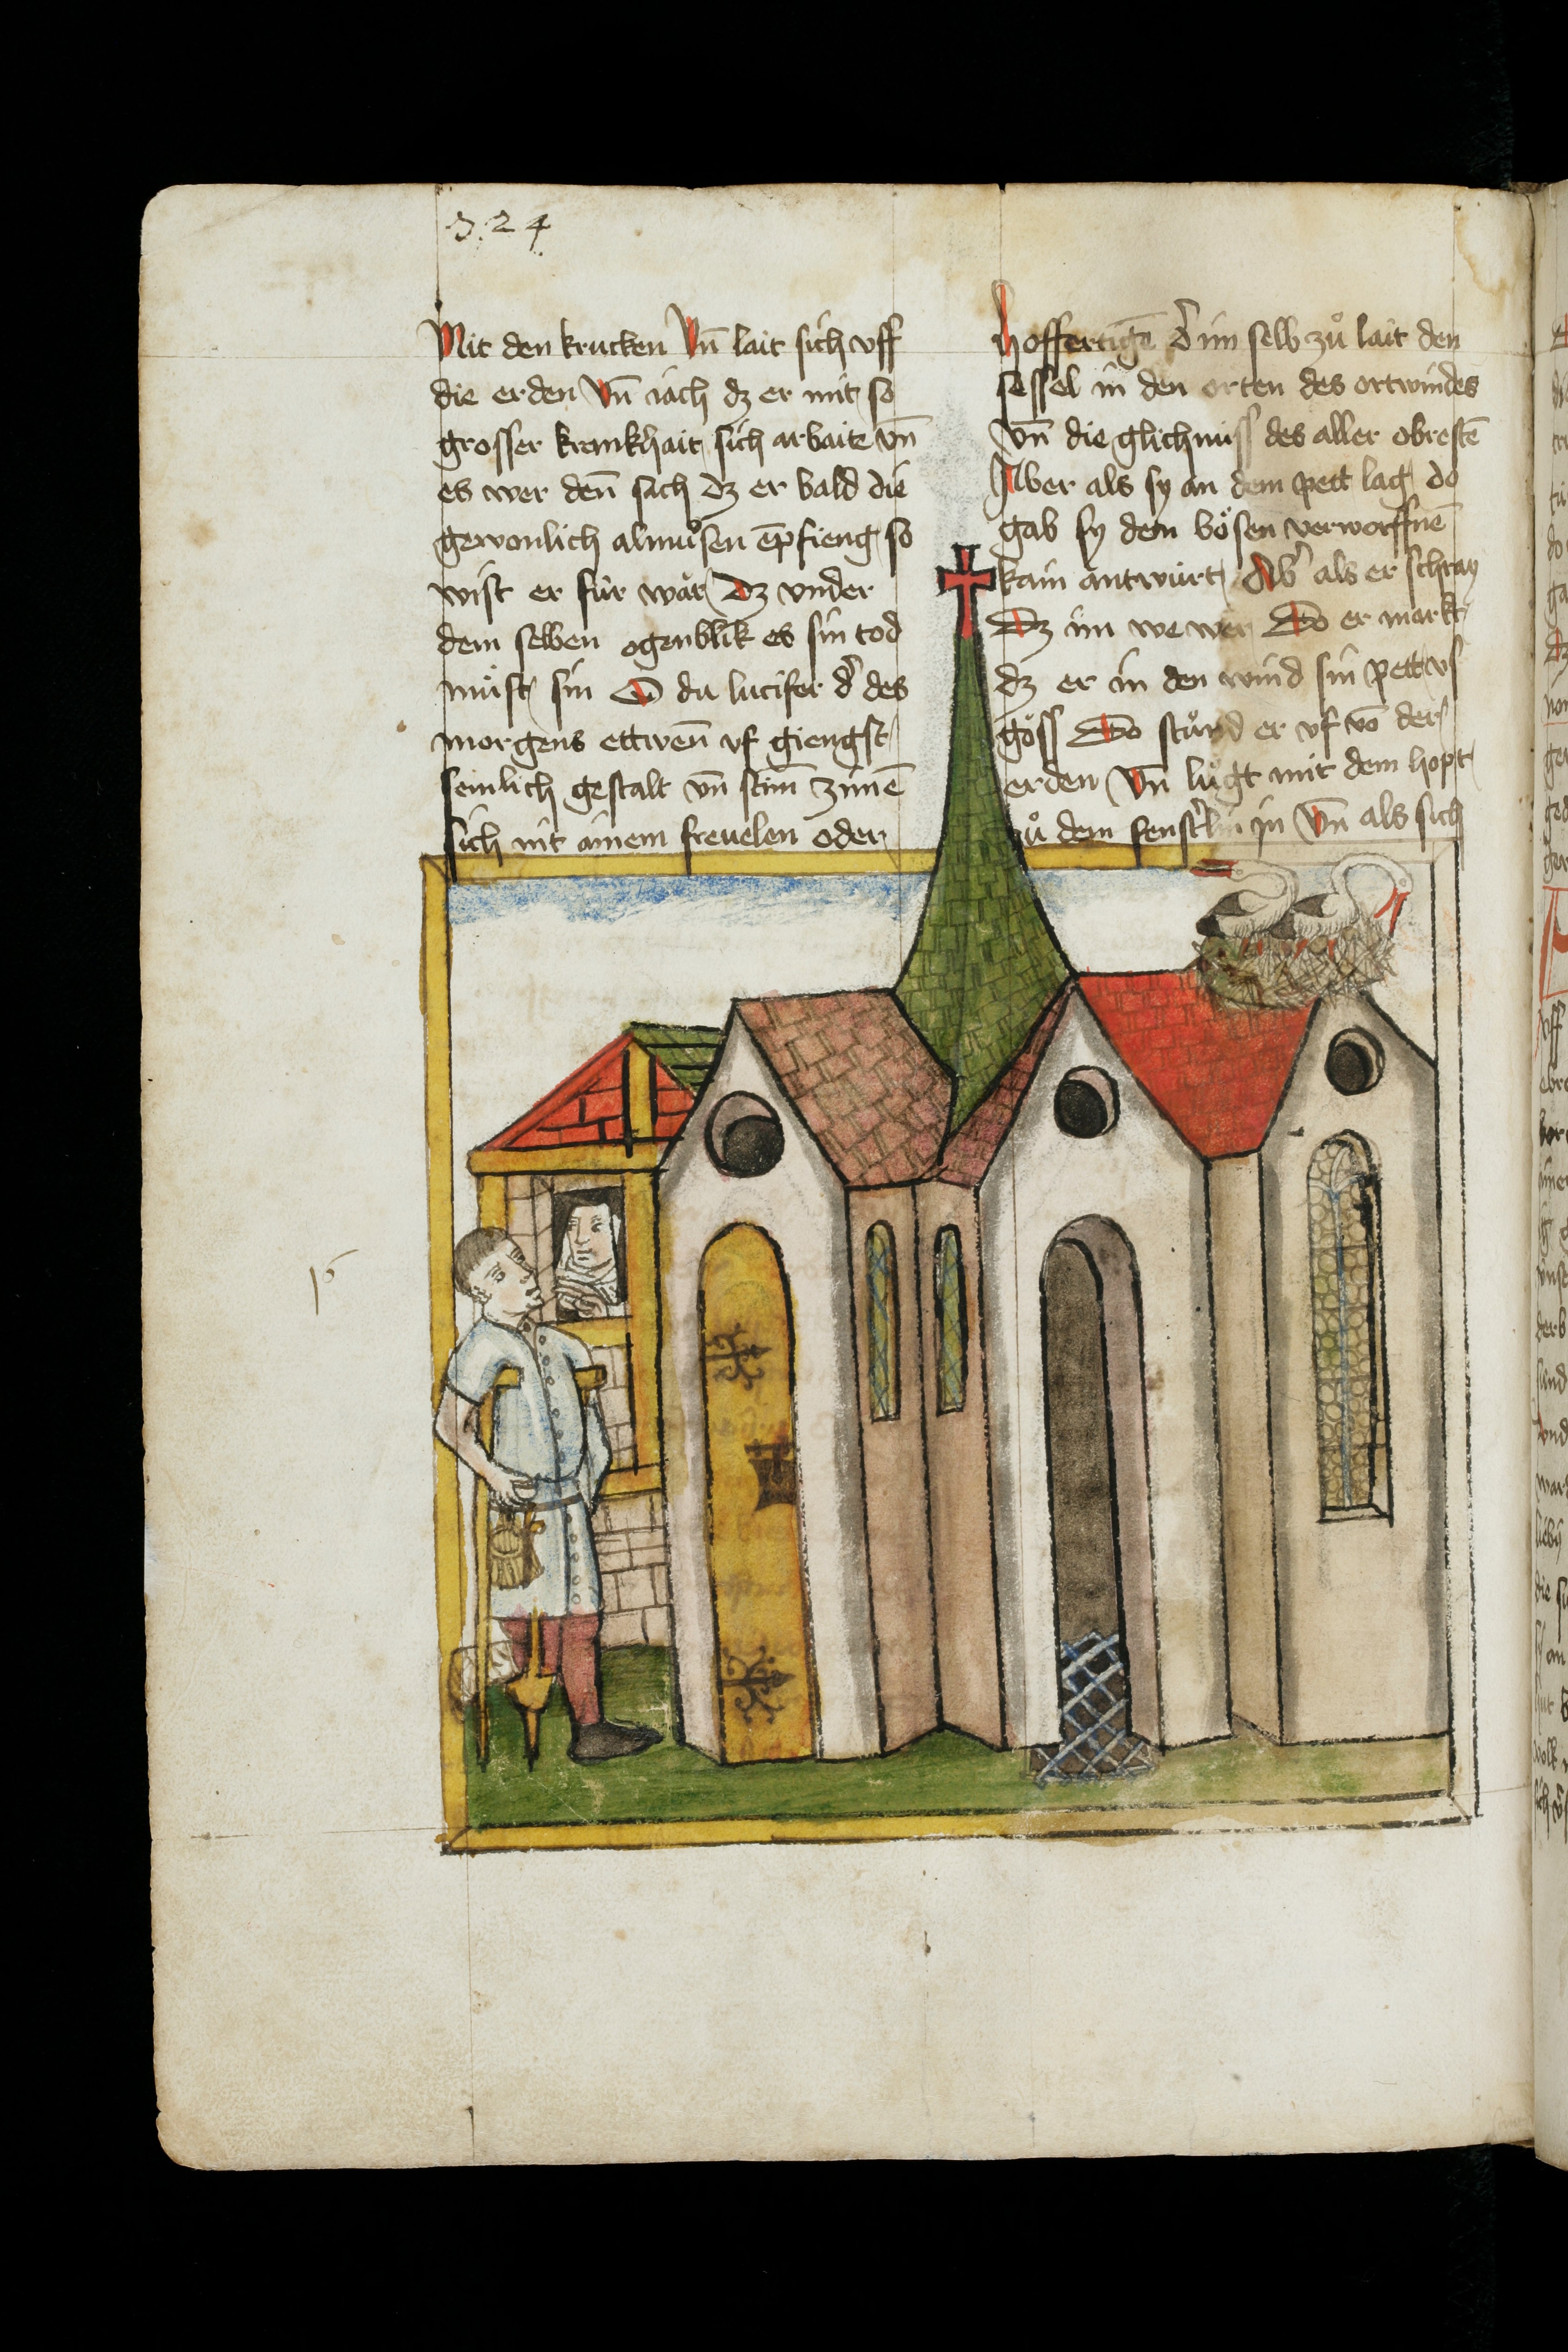 324
Mit den krucken Vn̄ lait sich vff
die erden Vn̄ iach dz er mit so
grosser krankhait sich arbaite vn̄
es wer den̄ sach dz er bald die
gewonlich almůsen ēpfieng so
wist er fúr war Dz vnder
dem selben ogenblik es sin tod
můst sin O du lucifer d' des
morgens ettwen̄ vf giengst
semlich gestalt vn̄ stim̄ zimē
sich nit ainem freuelen oder
hoffertigē d' im selb zů lait den
sessel in den orten des ortwindes
Vn̄ die glichnuss des aller obrestē
Aber als sy an dem pett lag do
gab sy dem bösen verworffnē
kain antwúrt Ab' als er schray
Dz im we wer Do er markt
dz er in den wind sin pett vs
göss Do stůnd er vf vō der
erden Vn̄ lůgt mit dem hopt
zů dem fenst'lin in Vn̄ als sich
16